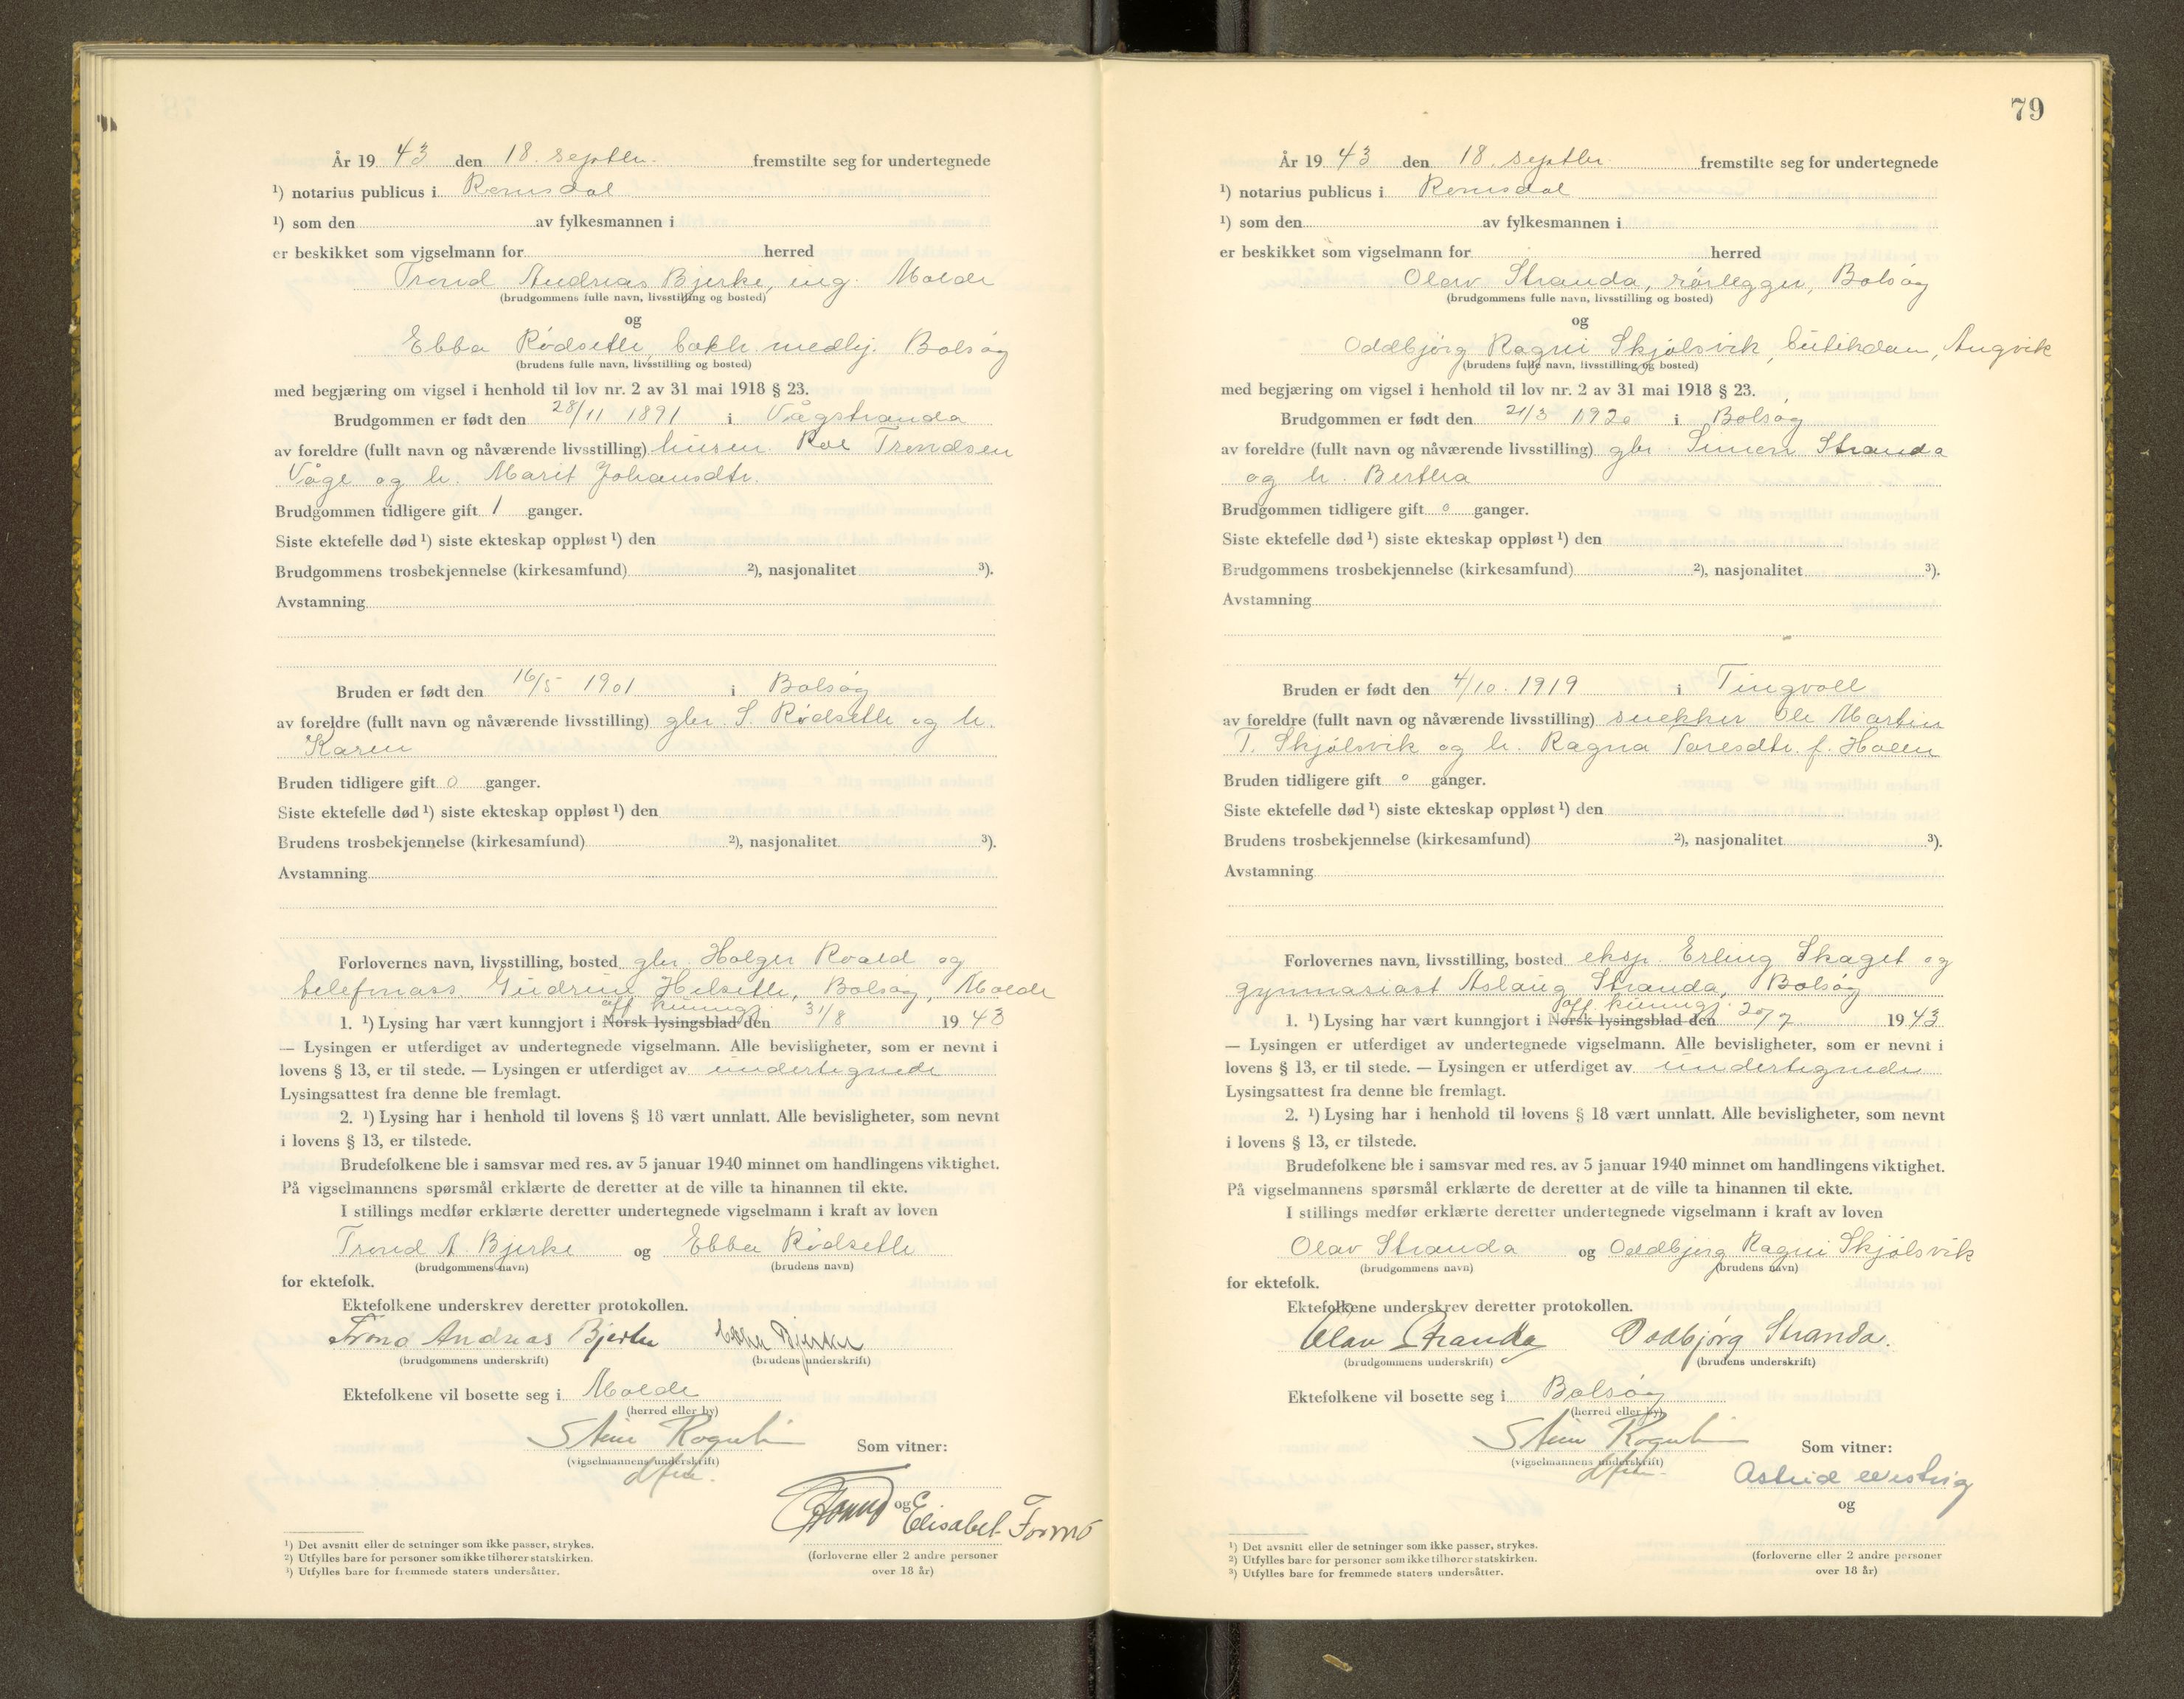 År 19 43 den 18. septbr. fremstilte seg for undertegnede
¹) notarius publicus i Romsdal
¹) som den av fylkesmannen i
er beskikket som vigselmann for herred
Trond Andreas Bjerke, ing. Molde
(brudgommens fulle navn, livsstilling og bosted)
og
Ebba Rødseth, bokh. medhj. Bolsøy
(brudens fulle navn, livsstilling og bosted)
med begjæring om vigsel i henhold til lov nr. 2 av 31 mai 1918 § 23.
Brudgommen er født den 28/11 1891 i Vågstranda
av foreldre (fullt navn og nåværende livsstilling) Roe Trondsen
Våge og h. Marit Johansdtr.
Brudgommen tidligere gift 1 ganger.
Siste ektefelle død ¹) siste ekteskap oppløst ¹) den
Brudgommens trosbekjennelse (kirkesamfund) ²), nasjonalitet ³).
Avstamning
Bruden er født den 16/5 1901 i Bolsøy
av foreldre (fullt navn og nåværende livsstilling) gbr. S. Rødseth og h.
Karen
Bruden tidligere gift 0 ganger.
Siste ektefelle død ¹) siste ekteskap oppløst ¹) den
Brudens trosbekjennelse (kirkesamfund) ²), nasjonalitet ³).
Avstamning
Forlovernes navn, livsstilling, bosted gbr. Holger Roald og
telefonass. Gudrun Helseth, Bolsøy, Molde
off. kunngj.
1. ¹) Lysing har vært kunngjort i Norsk lysingsblad den 31/8 19 43
— Lysingen er utferdiget av undertegnede vigselmann. Alle bevisligheter, som er nevnt i
lovens § 13, er til stede. — Lysingen er utferdiget av undertegnede
Lysingsattest fra denne ble fremlagt.
2. ¹) Lysing har i henhold til lovens § 18 vært unnlatt. Alle bevisligheter, som nevnt
i lovens § 13, er tilstede.
Brudefolkene ble i samsvar med res. av 5 januar 1940 minnet om handlingens viktighet.
På vigselmannens spørsmål erklærte de deretter at de ville ta hinannen til ekte.
I stillings medfør erklærte deretter undertegnede vigselmann i kraft av loven
Trond A. Bjerke og Ebba Rødseth
(brudgommens navn) (brudens navn)
for ektefolk.
Ektefolkene underskrev deretter protokollen.
Trond Andreas Bjerke Ebba Bjerke
(brudgommens underskrift) (brudens underskrift)
Ektefolkene vil bosette seg i Molde
(herred eller by)
Stein Rognli
(vigselmannens underskrift) Som vitner:
dfm.
og Elisabet Formo
(forloverne eller 2 andre personer
over 18 år)
¹) Det avsnitt eller de setninger som ikke passer, strykes.
²) Utfylles bare for personer som ikke tilhører statskirken.
³) Utfylles bare for fremmede staters undersåtter.
79
År 19 43 den 18. septbr. fremstilte seg for undertegnede
¹) notarius publicus i Romsdal
¹) som den av fylkesmannen i
er beskikket som vigselmann for herred
Olav Stranda, rørlegger, Bolsøy
(brudgommens fulle navn, livsstilling og bosted)
og
Oddbjørg Ragni Skjølsvik, butikdam, Angvik
(brudens fulle navn, livsstilling og bosted)
med begjæring om vigsel i henhold til lov nr. 2 av 31 mai 1918 § 23.
Brudgommen er født den 21/3 1920 i Bolsøy
av foreldre (fullt navn og nåværende livsstilling) gbr. Simen Stranda
og h. Bertha
Brudgommen tidligere gift 0 ganger.
Siste ektefelle død ¹) siste ekteskap oppløst ¹) den
Brudgommens trosbekjennelse (kirkesamfund) ²), nasjonalitet ³).
Avstamning
Bruden er født den 4/10. 1919 i Tingvoll
av foreldre (fullt navn og nåværende livsstilling) snekker Ole Martin
T. Skjølsvik og h. Ragna Toresdtr. f. Holen
Bruden tidligere gift 0 ganger.
Siste ektefelle død ¹) siste ekteskap oppløst ¹) den
Brudens trosbekjennelse (kirkesamfund) ²), nasjonalitet ³).
Avstamning
Forlovernes navn, livsstilling, bosted eksp. Erling Skaget og
gymnasiast Aslaug Stranda, Bolsøy
off. kunngj.
1. ¹) Lysing har vært kunngjort i Norsk lysingsblad den 20/7 19 43
— Lysingen er utferdiget av undertegnede vigselmann. Alle bevisligheter, som er nevnt i
lovens § 13, er til stede. — Lysingen er utferdiget av undertegnede
Lysingsattest fra denne ble fremlagt.
2. ¹) Lysing har i henhold til lovens § 18 vært unnlatt. Alle bevisligheter, som nevnt
i lovens § 13, er tilstede.
Brudefolkene ble i samsvar med res. av 5 januar 1940 minnet om handlingens viktighet.
På vigselmannens spørsmål erklærte de deretter at de ville ta hinannen til ekte.
I stillings medfør erklærte deretter undertegnede vigselmann i kraft av loven
Olav Stranda og Oddbjørg Ragni Skjølsvik
(brudgommens navn) (brudens navn)
for ektefolk.
Ektefolkene underskrev deretter protokollen.
Olav Stranda Oddbjørg Stranda.
(brudgommens underskrift) (brudens underskrift)
Ektefolkene vil bosette seg i Bolsøy
(herred eller by)
Stein Rognli
(vigselmannens underskrift) Som vitner:
dfm.
Astrid
og
(forloverne eller 2 andre personer
over 18 år)
¹) Det avsnitt eller de setninger som ikke passer, strykes.
²) Utfylles bare for personer som ikke tilhører statskirken.
³) Utfylles bare for fremmede staters undersåtter.